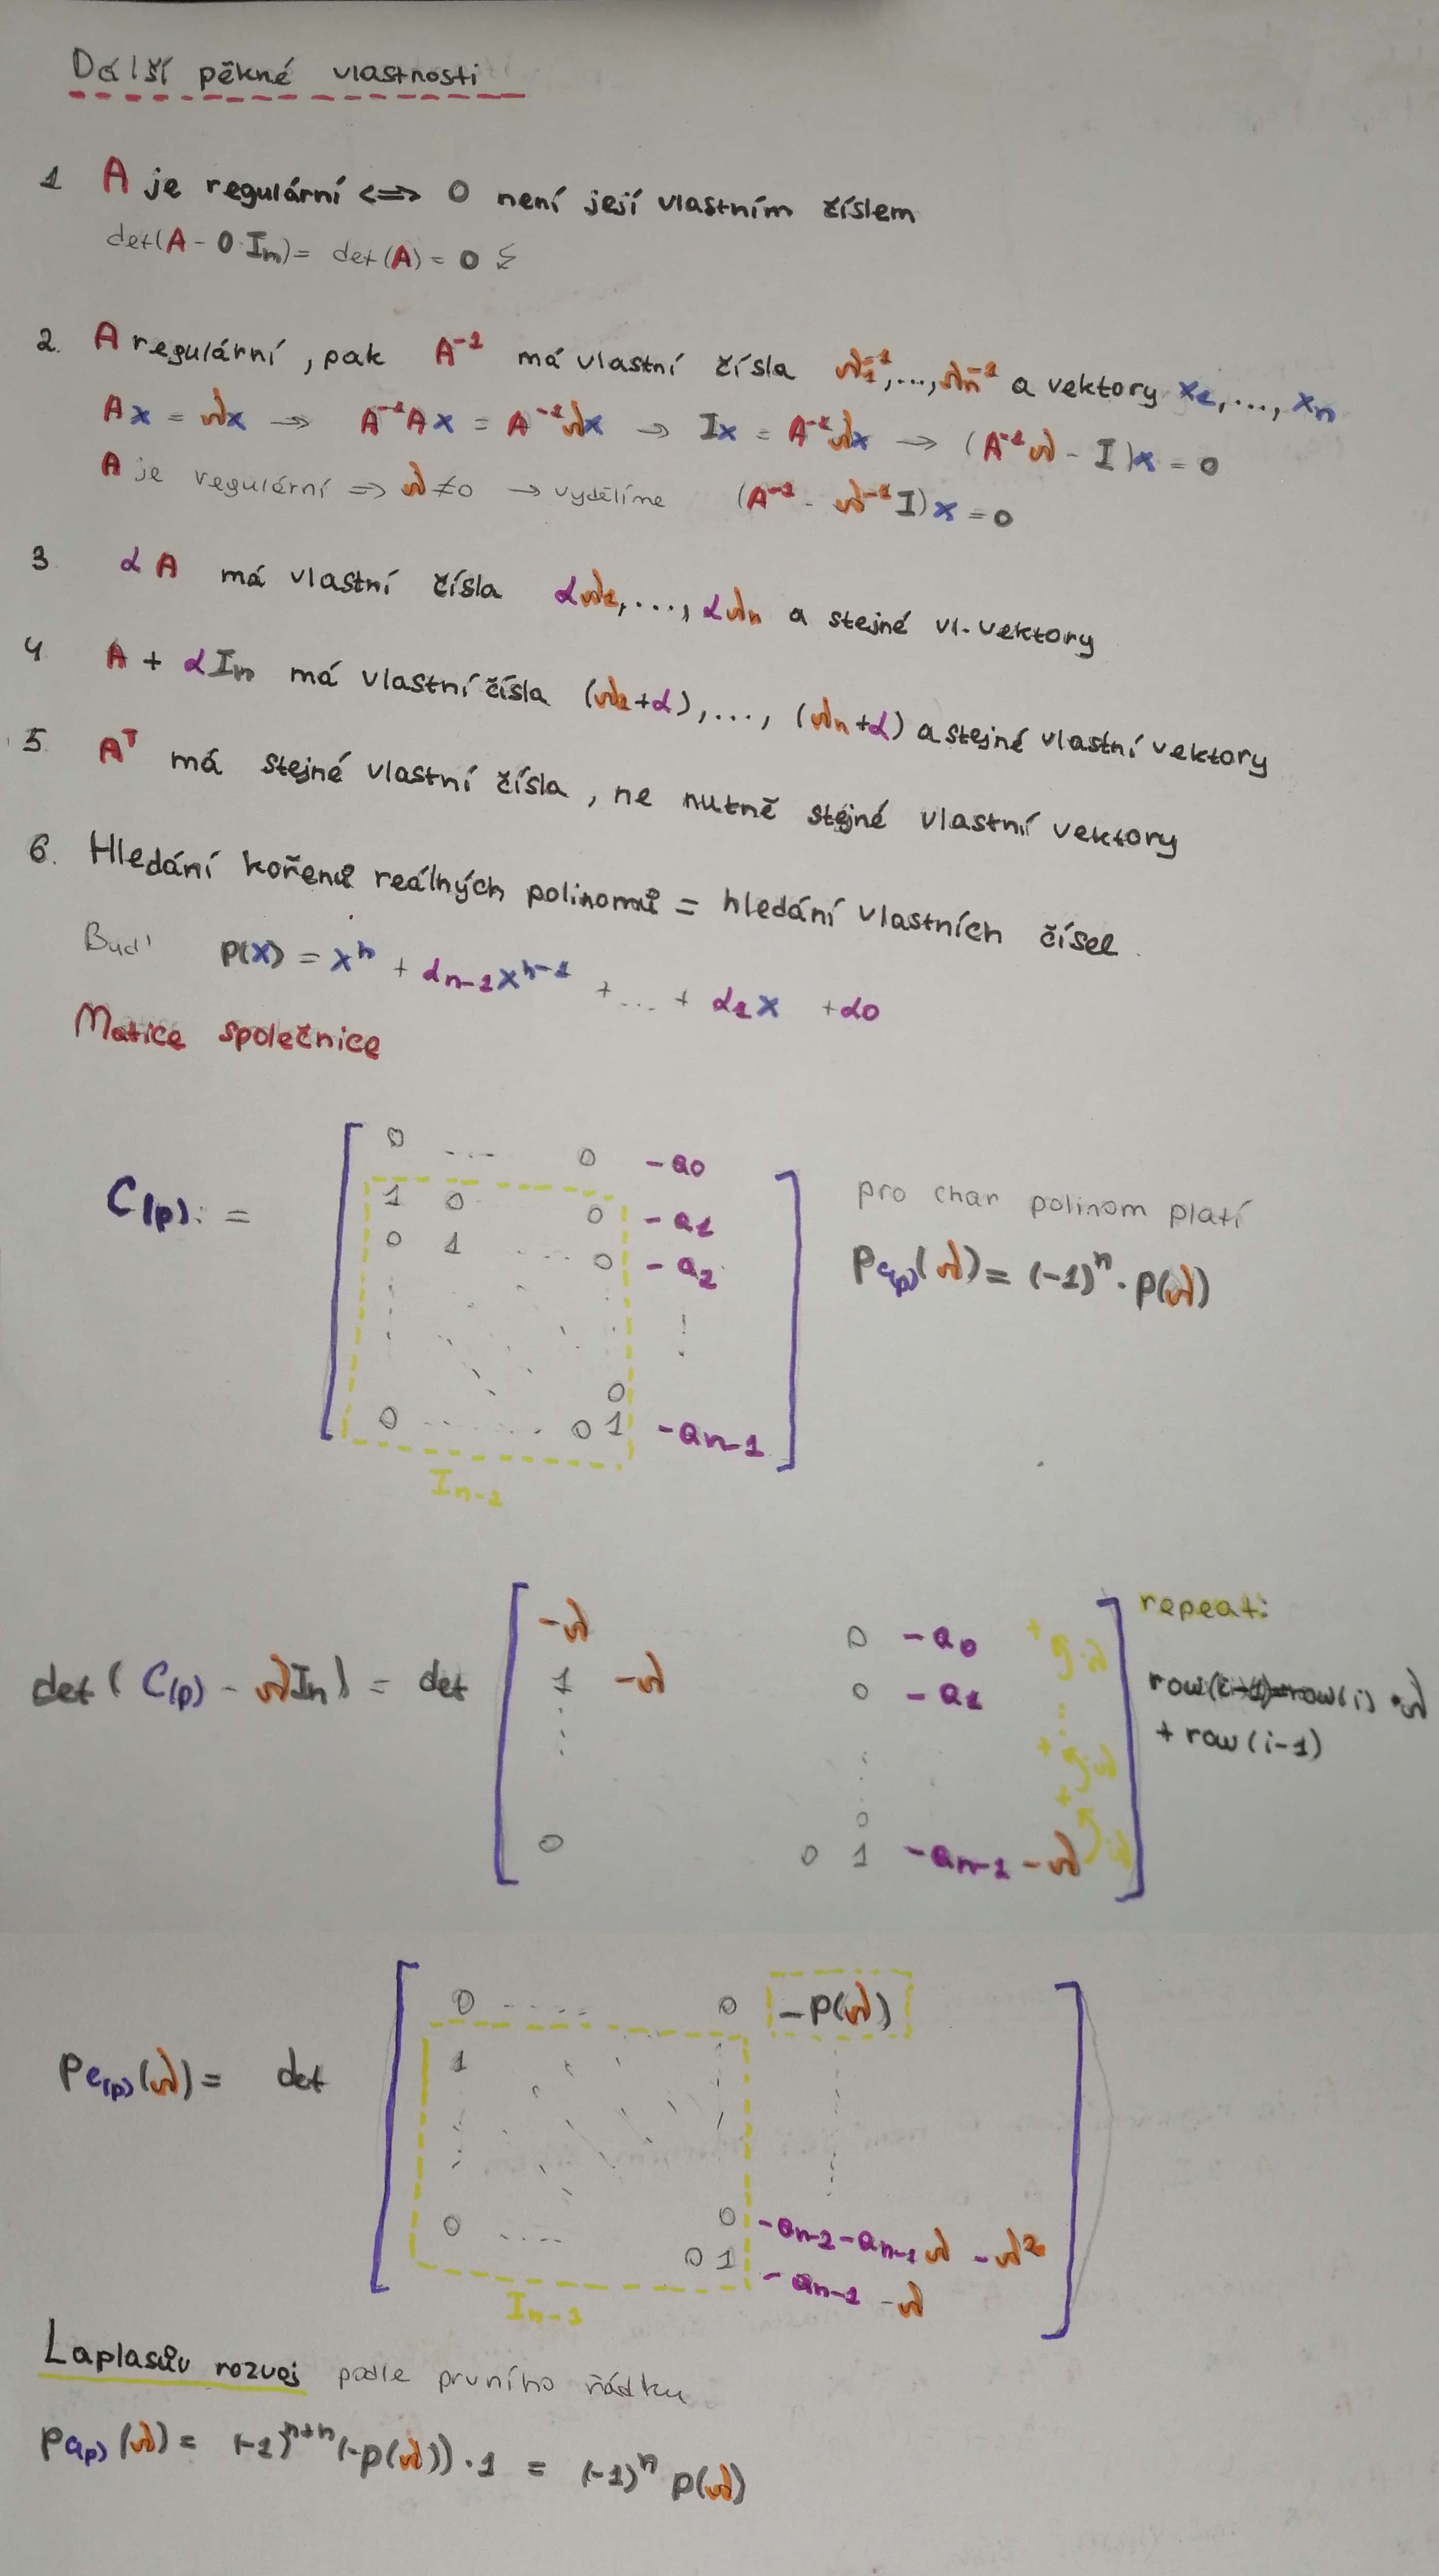 Další pěkné vlastnosti
1 A je regulární <=> 0 není její vlastním číslem
det(A - 0·In) = det(A) = 0 ↯
2. A regulární, pak A⁻¹ má vlastní čísla λ₁⁻¹,...,λn⁻¹ a vektory x₁,..., xn
Ax = λx → A⁻¹Ax = A⁻¹λx → Ix = A⁻¹λx → (A⁻¹λ - I)x = 0
A je regulární => λ≠0 → vydělíme (A⁻¹ - λ⁻¹I)x = 0
3 αA má vlastní čísla αλ₁,..., αλn a stejné vl. vektory
4 A + αIn má vlastní čísla (λ₁+α),..., (λn+α) a stejné vlastní vektory
5 Aᵀ má stejné vlastní čísla, ne nutně stejné vlastní vektory
6. Hledání kořenů reálných polinomů = hledání vlastních čísel.
Buď p(x) = xⁿ + αn-1xⁿ⁻¹ + ... + α1x + α0
Matice společnice
0 .... 0 -a0
C(p) :=
1 0 0 -a1
pro char polinom platí
0 1 ... 0 -a2
PC(p)(λ) = (-1)ⁿ · p(λ)
0
0 ....... 0 1 -an-1
In-1
-λ 0 -a0 +
repeat:
·λ
det(C(p) - λIn) = det
1 -λ 0 -a1
row(i) ·λ
+ row(i-1)
+ ·λ
0 +
0 0 1 -an-1 -λ ·λ
0 ..... 0 -p(λ)
PC(p)(λ) = det
1
0 .... 0 -an-2 -an-1λ -λ²
0 1 -an-1 -λ
In-1
Laplasův rozvoj podle prvního řádku
PC(p)(λ) = (-1)ⁿ⁺ⁿ(-p(λ)) · 1 = (-1)ⁿ p(λ)